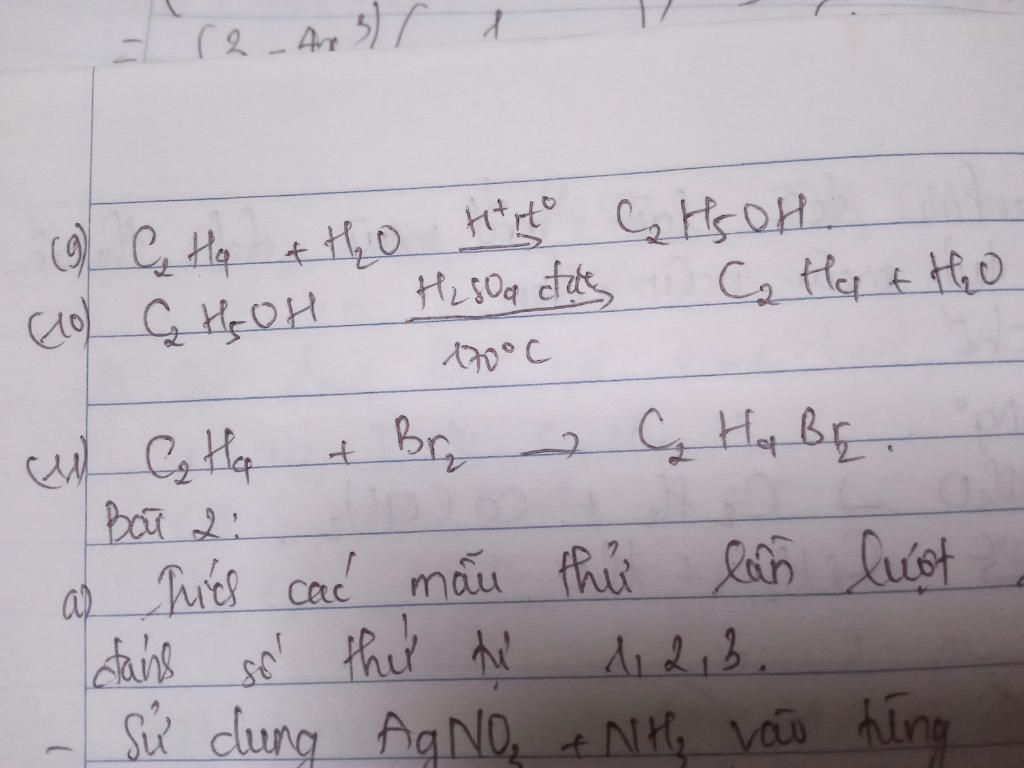 = (2 - 4x³) ( 1
(9) C₂H₄ + H₂O H⁺, t° → C₂H₅OH.
(10) C₂H₅OH H₂SO₄ đặc → C₂H₄ + H₂O
170°C
(11) C₂H₄ + Br₂ → C₂H₄Br₂.
Bài 2:
a) Trích các mẫu thử lần lượt
đánh số thứ tự 1, 2, 3.
- Sử dụng AgNO₃ + NH₃ vào từng